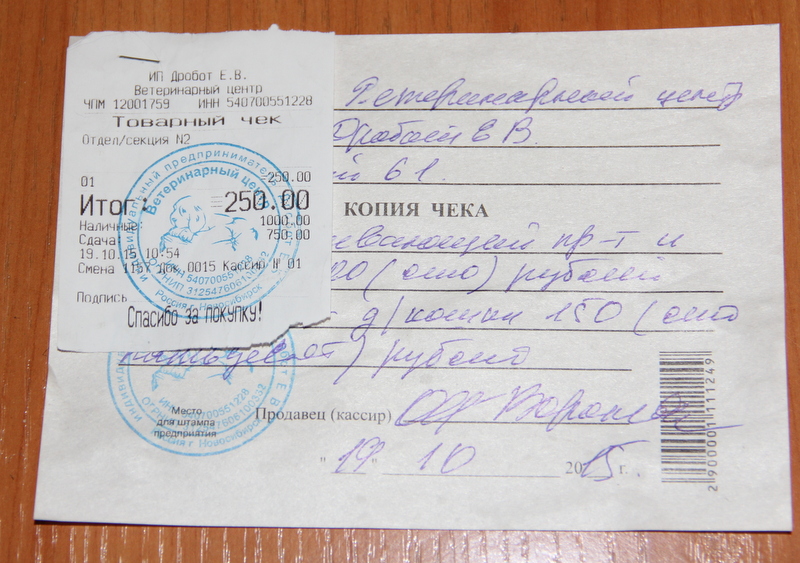 ИП Дробот Е.В.
Ветеринарный центр
ЧПМ 12001759 ИНН 540700551228
Товарный чек
Отдел/секция N2
01 =250.00
Итог: =250.00
Наличные 1000.00
Сдача: 750.00
19.10.15 10:54
Смена 1157 Док.0015 Кассир № 01
Подпись
Спасибо за покупку!
Ветеринарный центр
Дробот Е В.
й 61.
КОПИЯ ЧЕКА
вающей пр-т и
00 (сто) рублей
д/кошки 150 (сто
пятьдесят) рублей
Место
для штампа
предприятия
Продавец (кассир)
"19" 10 2015 г.
2 900001 111249
индивидуальный предприниматель
Ветеринарный центр
ИНН 540700551228
Россия г. Новосибирск
ИНН 540700551228
Россия г. Новосибирск